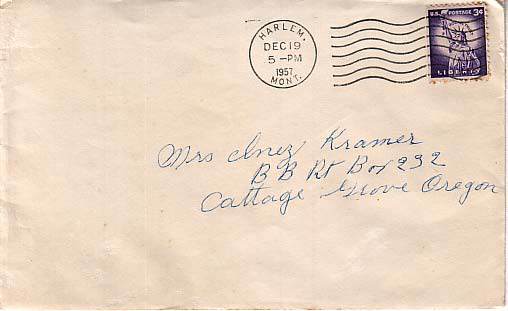 HARLEM.
DEC 19
5 - PM
1957
MONT.
U.S. POSTAGE 3¢
LIBERTY
Mrs Inez Kramer
B B Rt Box 232
Cottage Grove Oregon